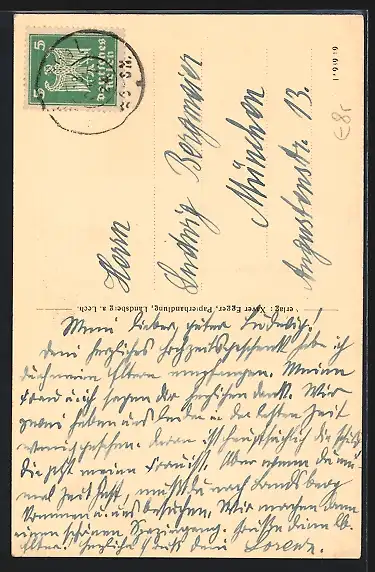 5 5
Deutsches Reich
Herrn
Ludwig Bergmeier
München
Augustenstr. 13.
Verlag: Xaver Egger, Papierhandlung, Landsberg a. Lech.
€8,-
Mein lieber, guter Ludwig!
Dein herzliches Hochzeitsgeschenk habe ich
durch meine Eltern empfangen. Meine
Frau u. ich sagen Dir herzlichen Dank. Wir
zwei haben uns leider in der letzten Zeit
wenig gesehen. Daran ist hauptsächlich die schuld
die jetzt meine Frau ist. Aber wenn du ein-
mal Zeit hast, mußt du nach Landsberg
kommen u. uns besuchen. Wir machen dann
einen schönen Spaziergang. Grüße deine lb.
Eltern. Herzliche Grüße dein Lorenz.